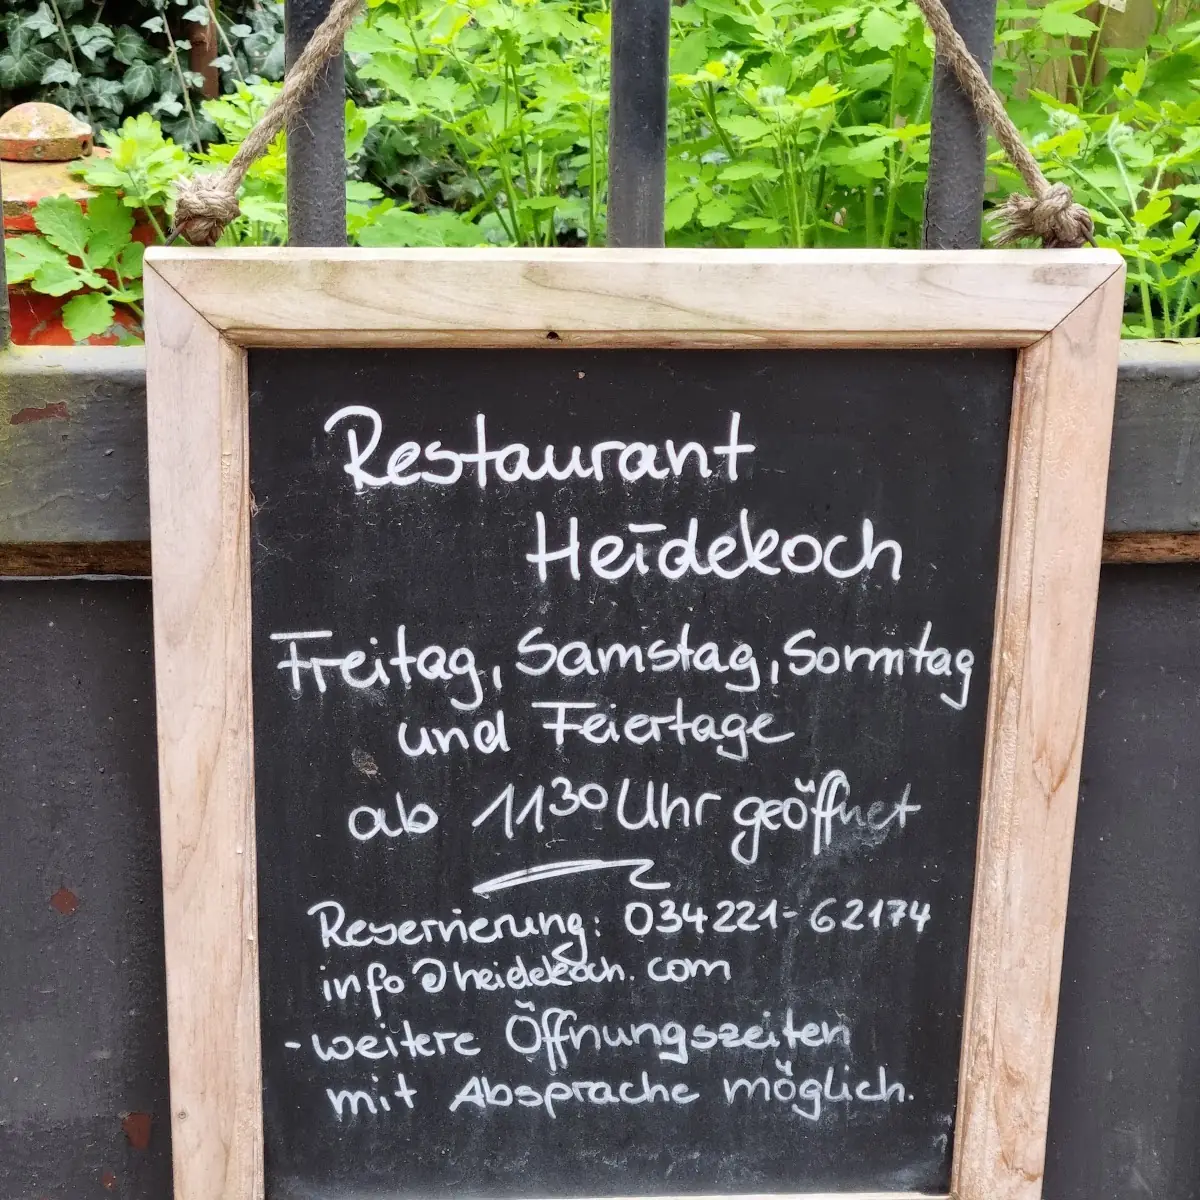 Restaurant
Heidekoch
Freitag, Samstag, Sonntag
und Feiertage
ab 11³⁰ Uhr geöffnet
Reservierung: 034221-62174
info@heidekoch.com
- weitere Öffnungszeiten
mit Absprache möglich.